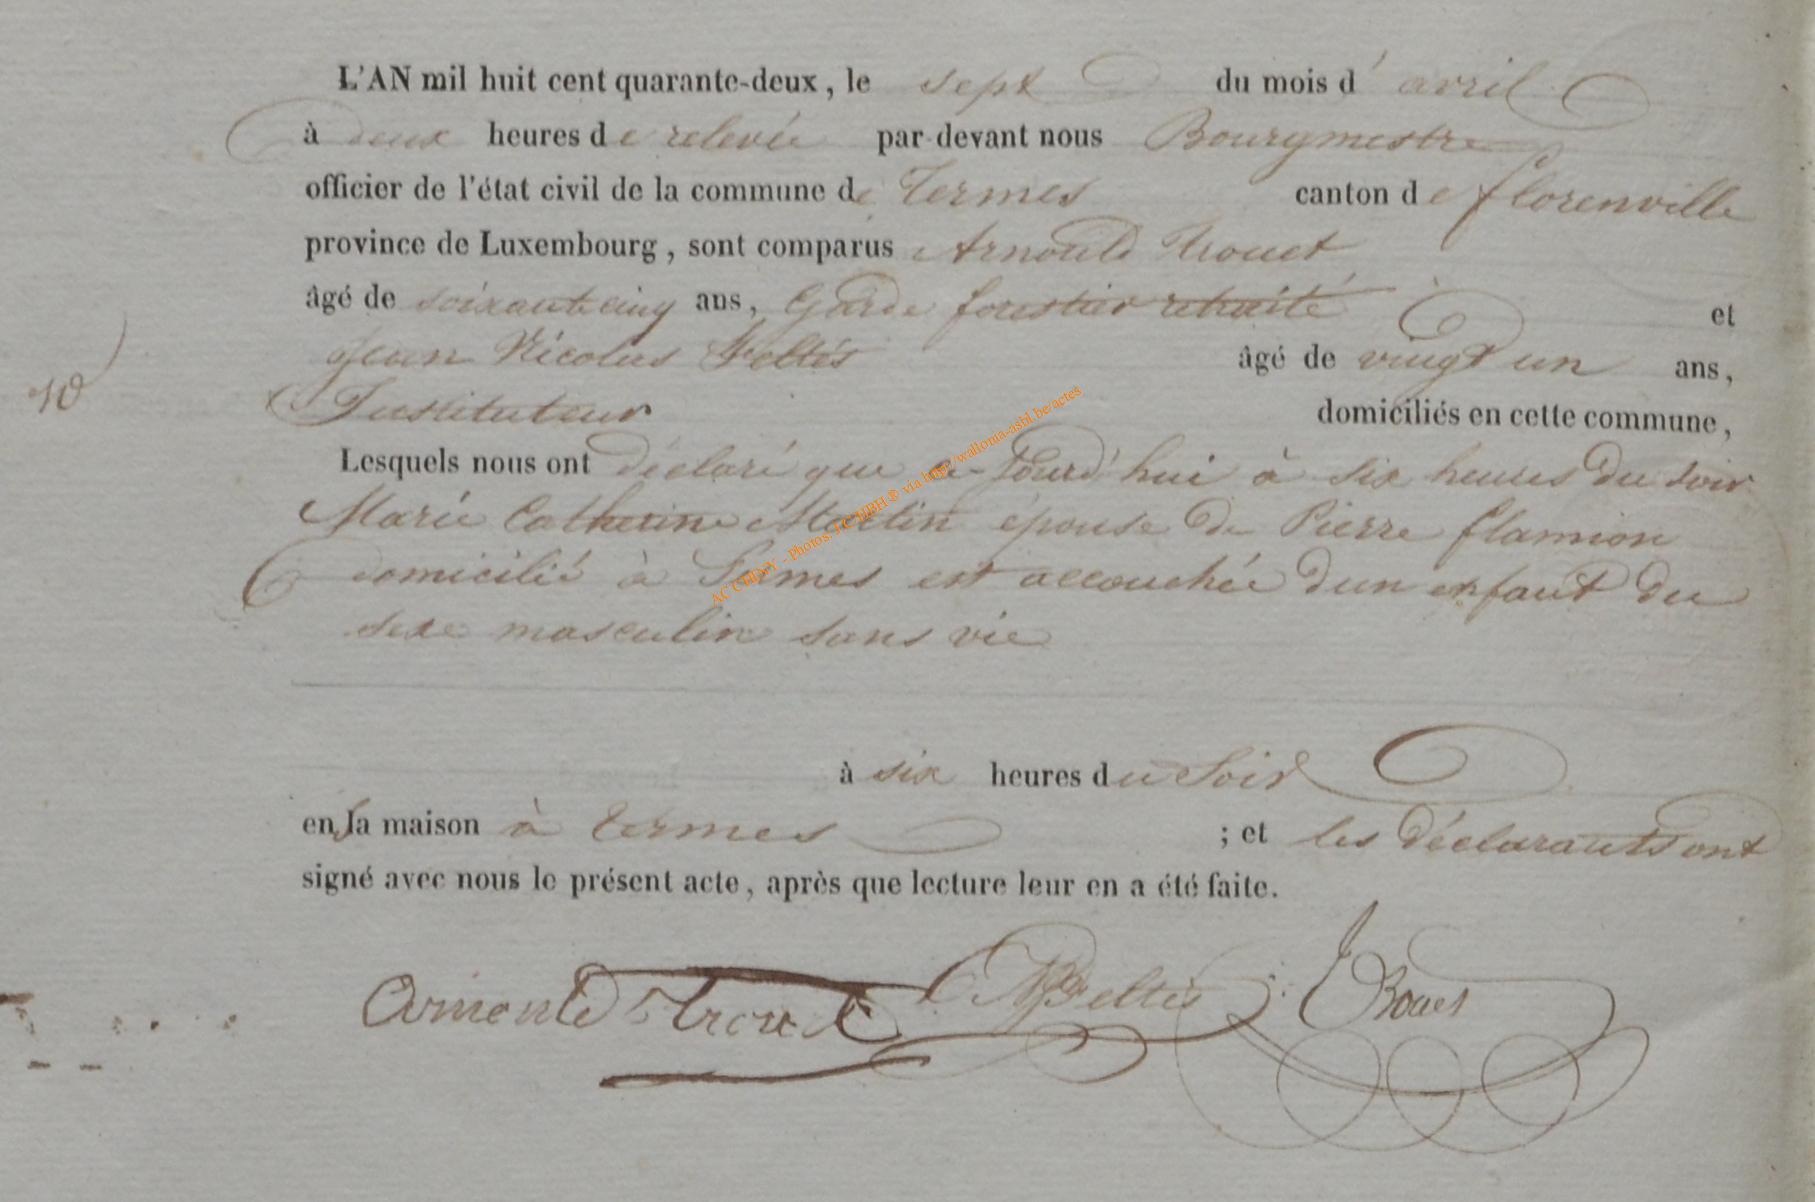 L'AN mil huit cent quarante-deux, le sept du mois d'avril
à deux heures de relevée par devant nous Bourgmestre
officier de l'état civil de la commune de Termes canton de florenville
province de Luxembourg, sont comparus Arnould Trouet
âgé de soixante cinq ans, Garde forestier retraité et
Jean Nicolas Feltés âgé de vingt un ans,
10
Instituteur domiciliés en cette commune,
Lesquels nous ont déclaré que a-jourd'hui à six heures du soir
Marie Catherine Martin épouse de Pierre flamion
domicilié à Termes est accouchée d'un enfant du
sexe masculin sans vie
AC CHINY - Photos: via http://wallonia-asbl.be/actes
à six heures du Soir
en sa maison à termes ; et les déclarants ont
signé avec nous le présent acte, après que lecture leur en a été faite.
Arnould Trouet JN Feltés J Boues